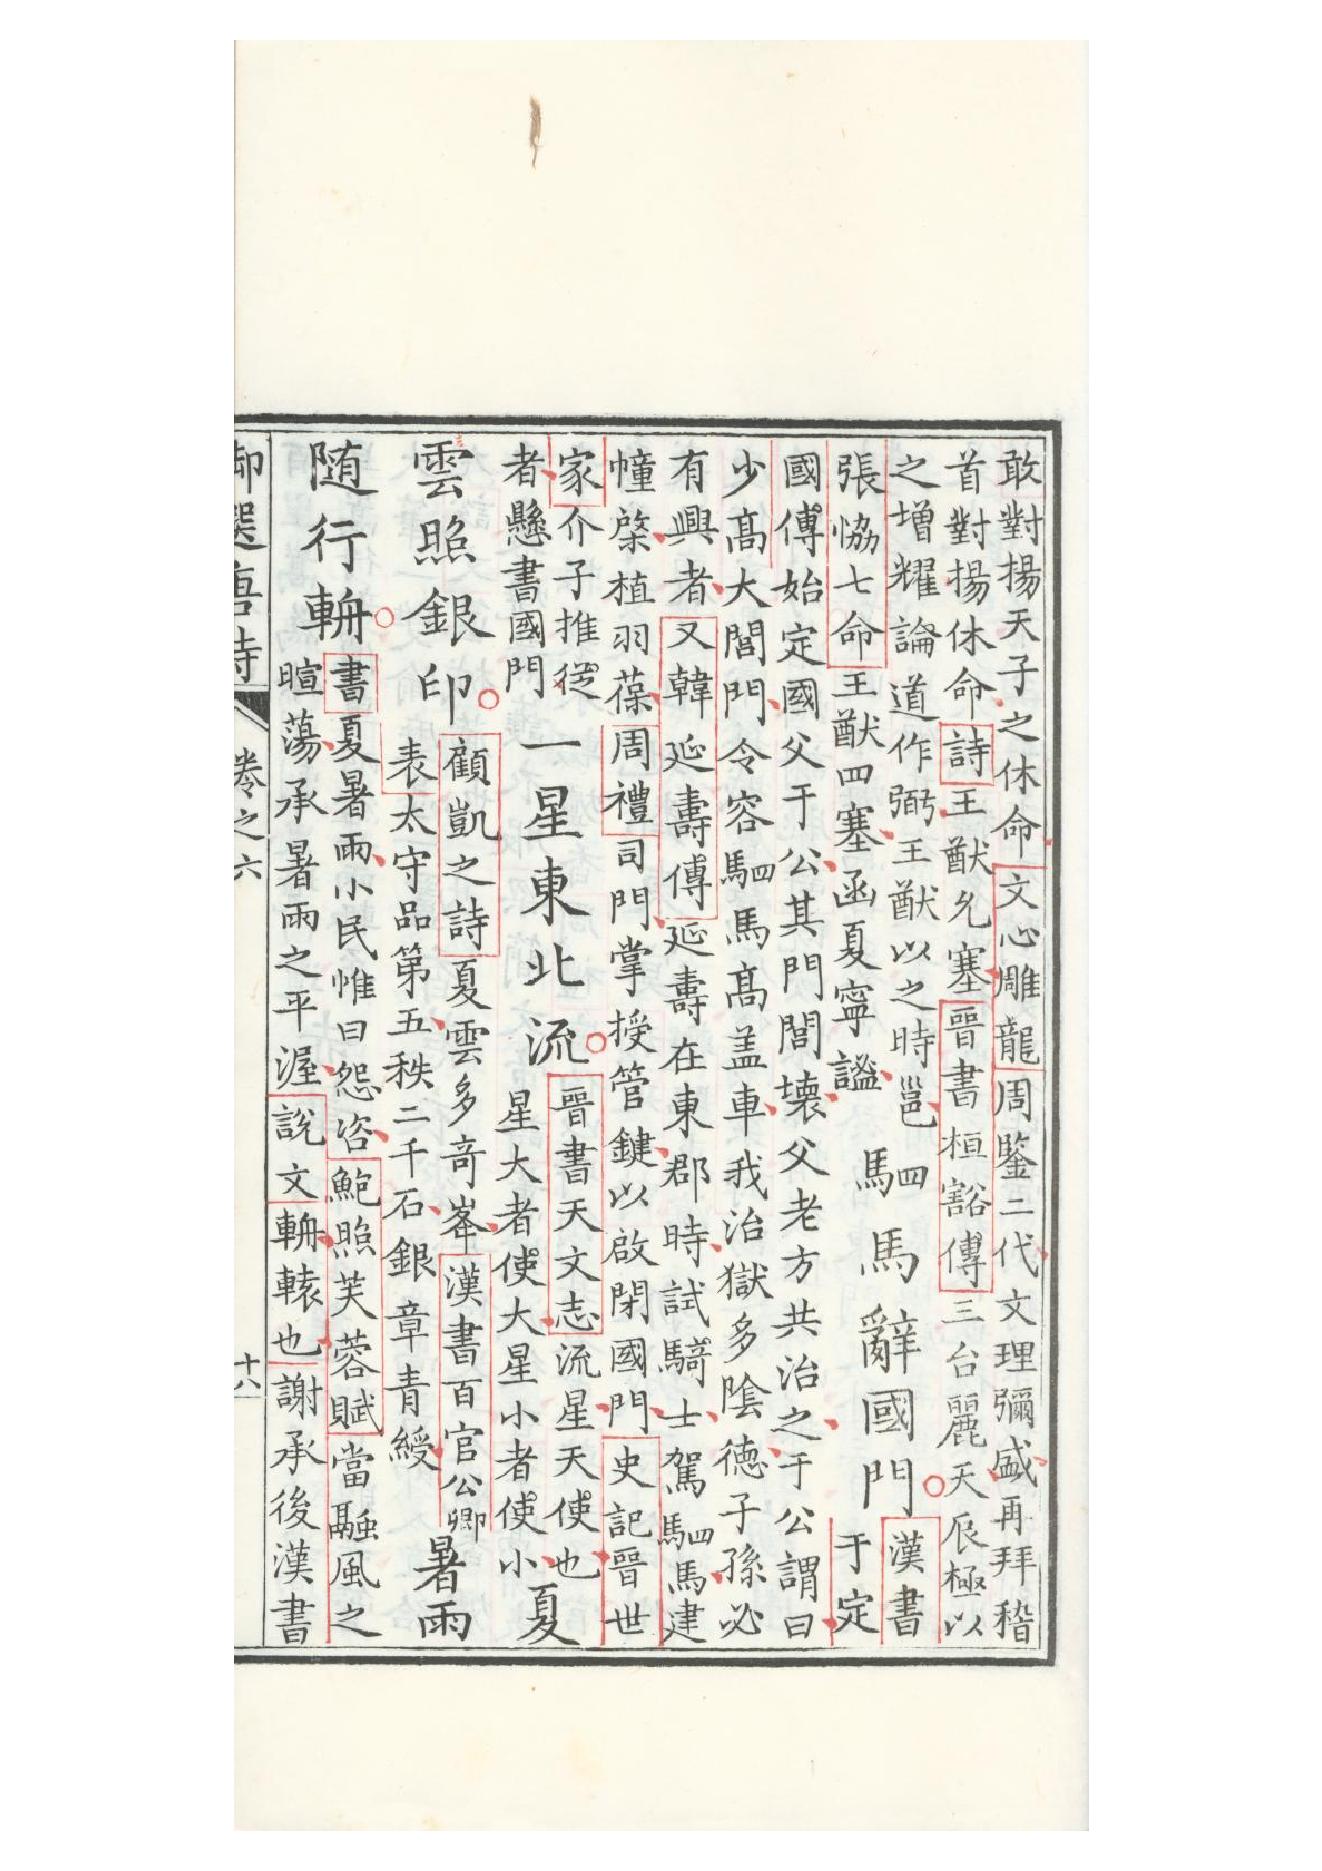 敢對揚天子之休命文心雕龍周鑒二代文理彌盛再拜稽
首對揚休命詩王猷允塞晉書桓豁傳三台麗天辰極以
之增耀論道作弼王猷以之時邕 駟馬辭國門 漢書
張協七命王猷四塞函夏寧謐 于定
國傳始定國父于公其門閭壞父老方共治之于公謂曰
少高大閭門令容駟馬高盖車我治獄多陰德子孫必
有興者又韓延壽傳延壽在東郡時試騎士駕駟馬建
幢棨植羽葆周禮司門掌授管鍵以啟閉國門史記晉世
家介子推從
者懸書國門 一星東北流 晉書天文志流星天使也
星大者使大星小者使小 夏
雲照銀印 顧凱之詩夏雲多奇峯漢書百官公卿
表太守品第五秩二千石銀章青綬 暑雨
随行輈 書夏暑雨小民惟曰怨咨鮑照芙蓉賦當融風之
暄蕩承暑雨之平渥說文輈轅也謝承後漢書
御選唐詩 卷之六 十八